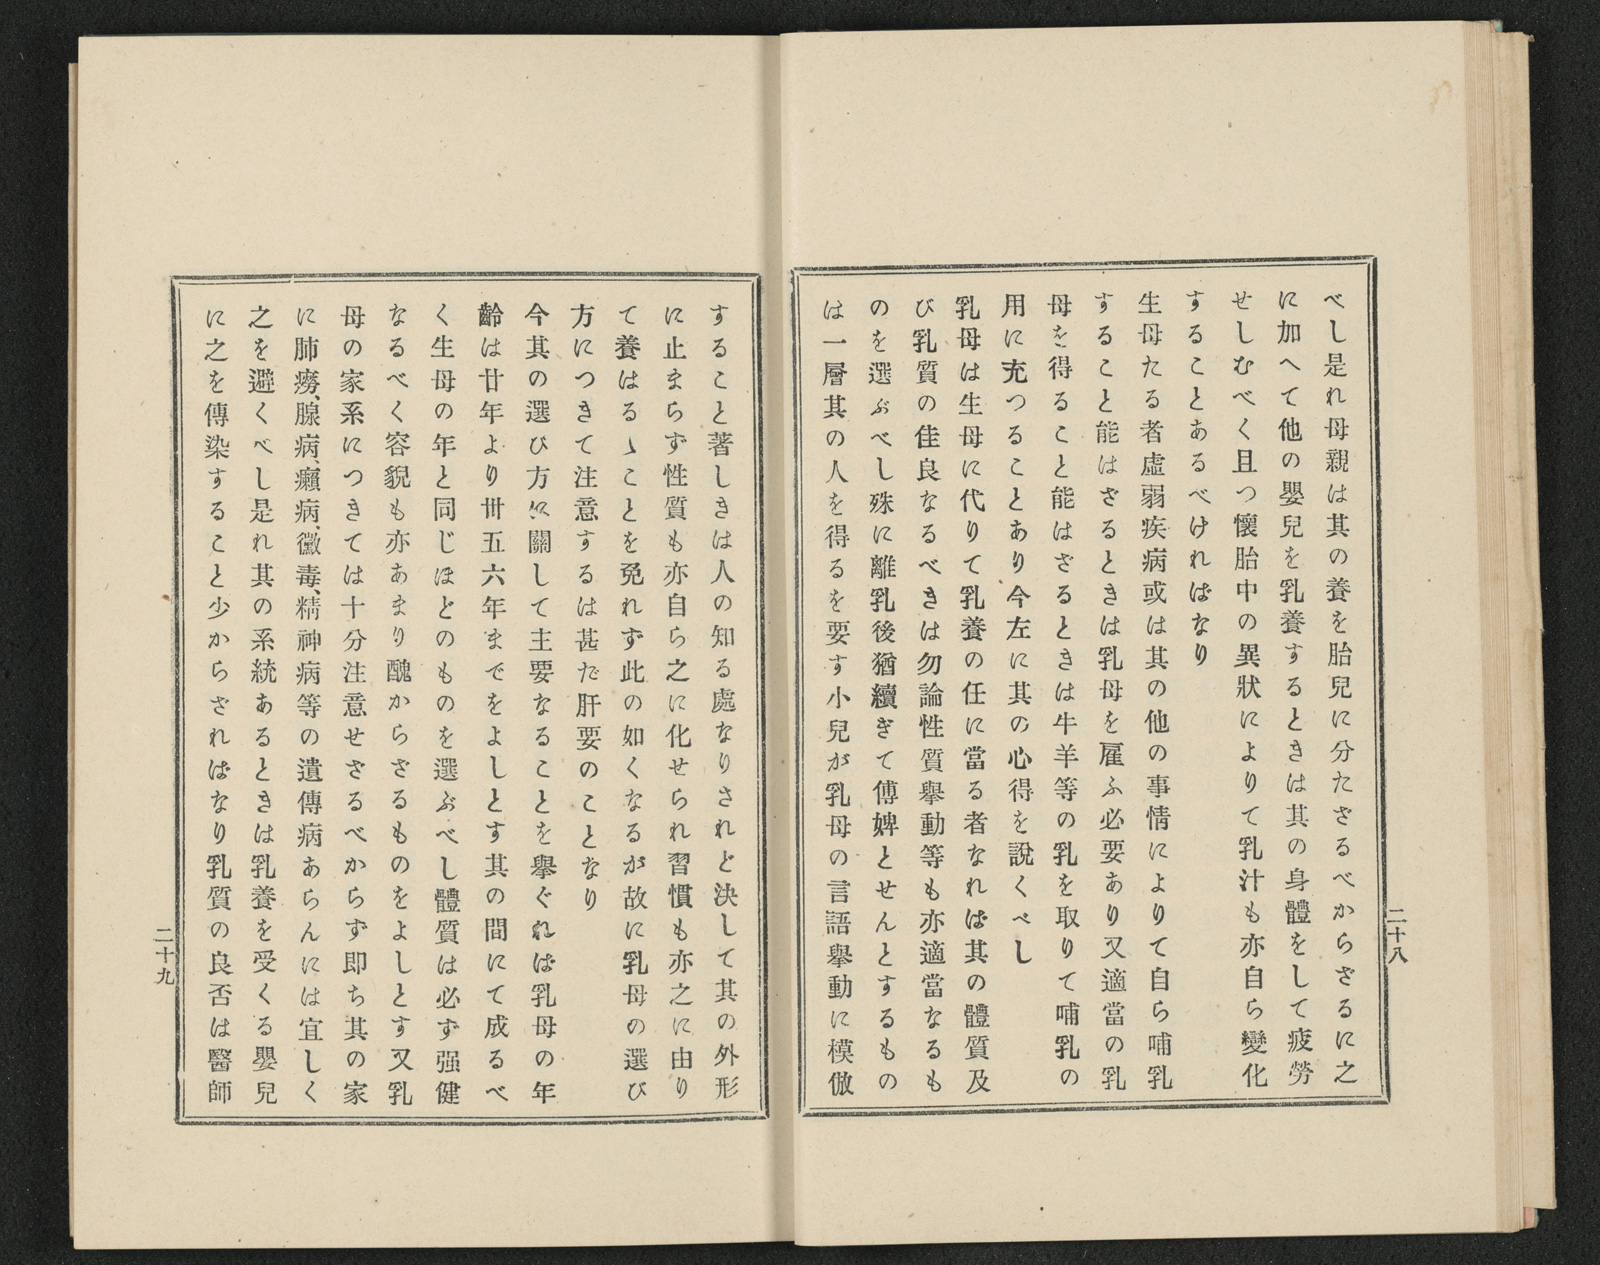 べし是れ母親は其の養を胎兒に分たざるべからざるに之
に加へて他の嬰兒を乳養するときは其の身體をして疲勞
せしむべく且つ懷胎中の異狀によりて乳汁も亦自ら變化
することあるべければなり
生母たる者虛弱疾病或は其の他の事情によりて自ら哺乳
すること能はざるときは乳母を雇ふ必要あり又適當の乳
母を得ること能はざるときは牛羊等の乳を取りて哺乳の
用に充つることあり今左に其の心得を說くべし
乳母は生母に代りて乳養の任に當る者なれば其の體質及
び乳質の佳良なるべきは勿論性質擧動等も亦適當なるも
のを選ぶべし殊に離乳後猶續ぎて傅婢とせんとするもの
は一層其の人を得るを要す小兒が乳母の言語擧動に模倣
二十八
すること著しきは人の知る處なりされど決して其の外形
に止まらず性質も亦自ら之に化せられ習慣も亦之に由り
て養はるゝことを免れず此の如くなるが故に乳母の選び
方につきて注意するは甚だ肝要のことなり
今其の選び方に關して主要なることを擧ぐれば乳母の年
齡は廿年より卅五六年までをよしとす其の間にて成るべ
く生母の年と同じほどのものを選ぶべし體質は必ず强健
なるべく容貌も亦あまり醜からざるものをよしとす又乳
母の家系につきては十分注意せざるべからず即ち其の家
に肺癆、腺病、癩病、黴毒、精神病等の遺傳病あらんには宜しく
之を避くべし是れ其の系統あるときは乳養を受くる嬰兒
に之を傳染すること少からざればなり乳質の良否は醫師
二十九